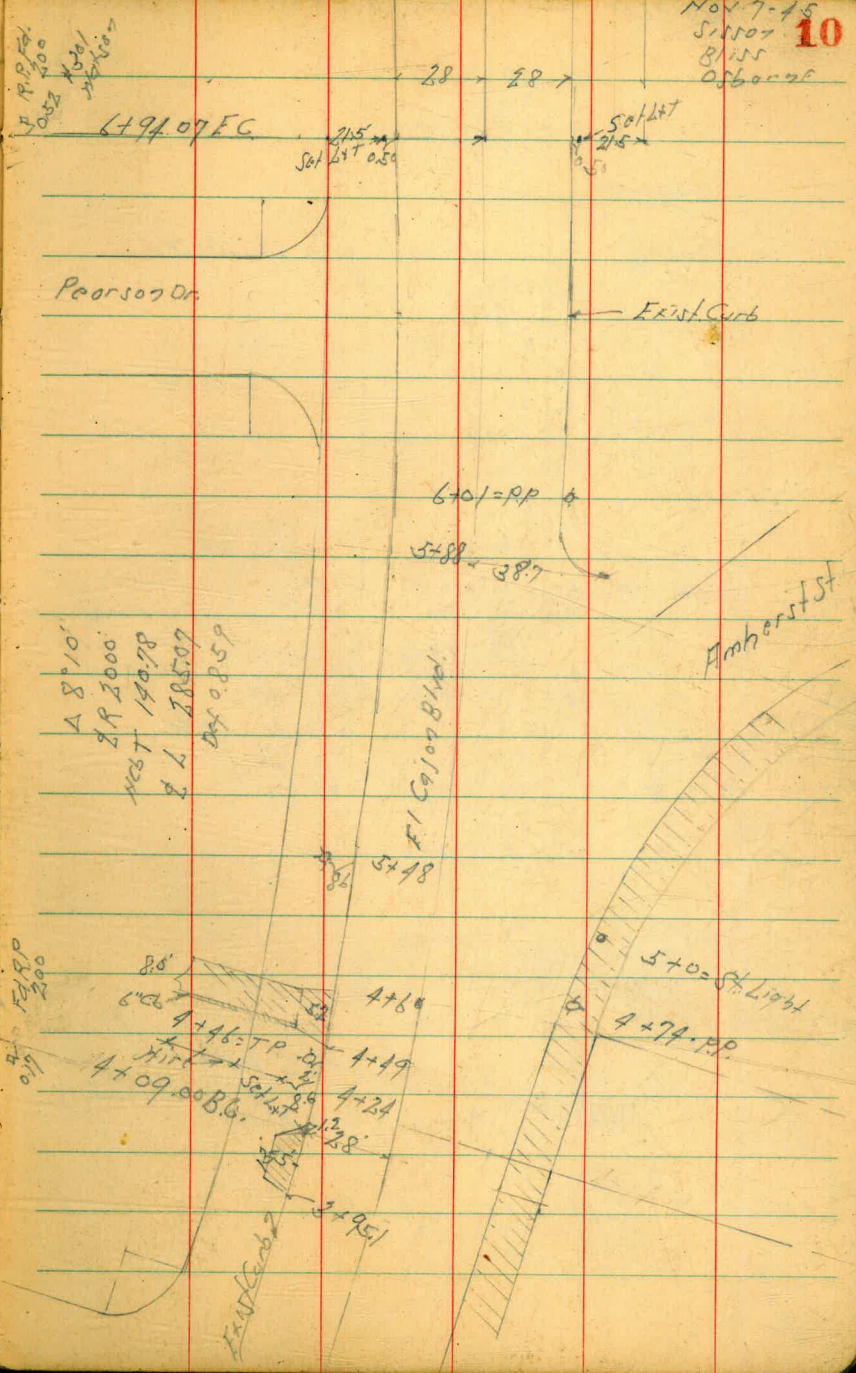 Nov. 7-45
Sisson
Bliss
Osborne
10
R.P. Fd.
200
0.52
28 28
6+94.07 E.C.
21.5
Set L&T 0.50
Set L&T
21.5
0.50
Pearson Dr.
Exist. Curb
6+01 = P.P.
5+88 38.7
Amherst St
Δ 8°10'
R 2000
T 140.78
L 285.07
Def 0.859
El Cajon Blvd.
5+48
Fd RP
200
0.17
8.0'
6" Cb
4+60
5+0 = St. Light
4+46 = T P
4+49
4+74 - P.P.
4+09.00 B.C.
4+24
1.2
28'
3+95.1
Exist Curb